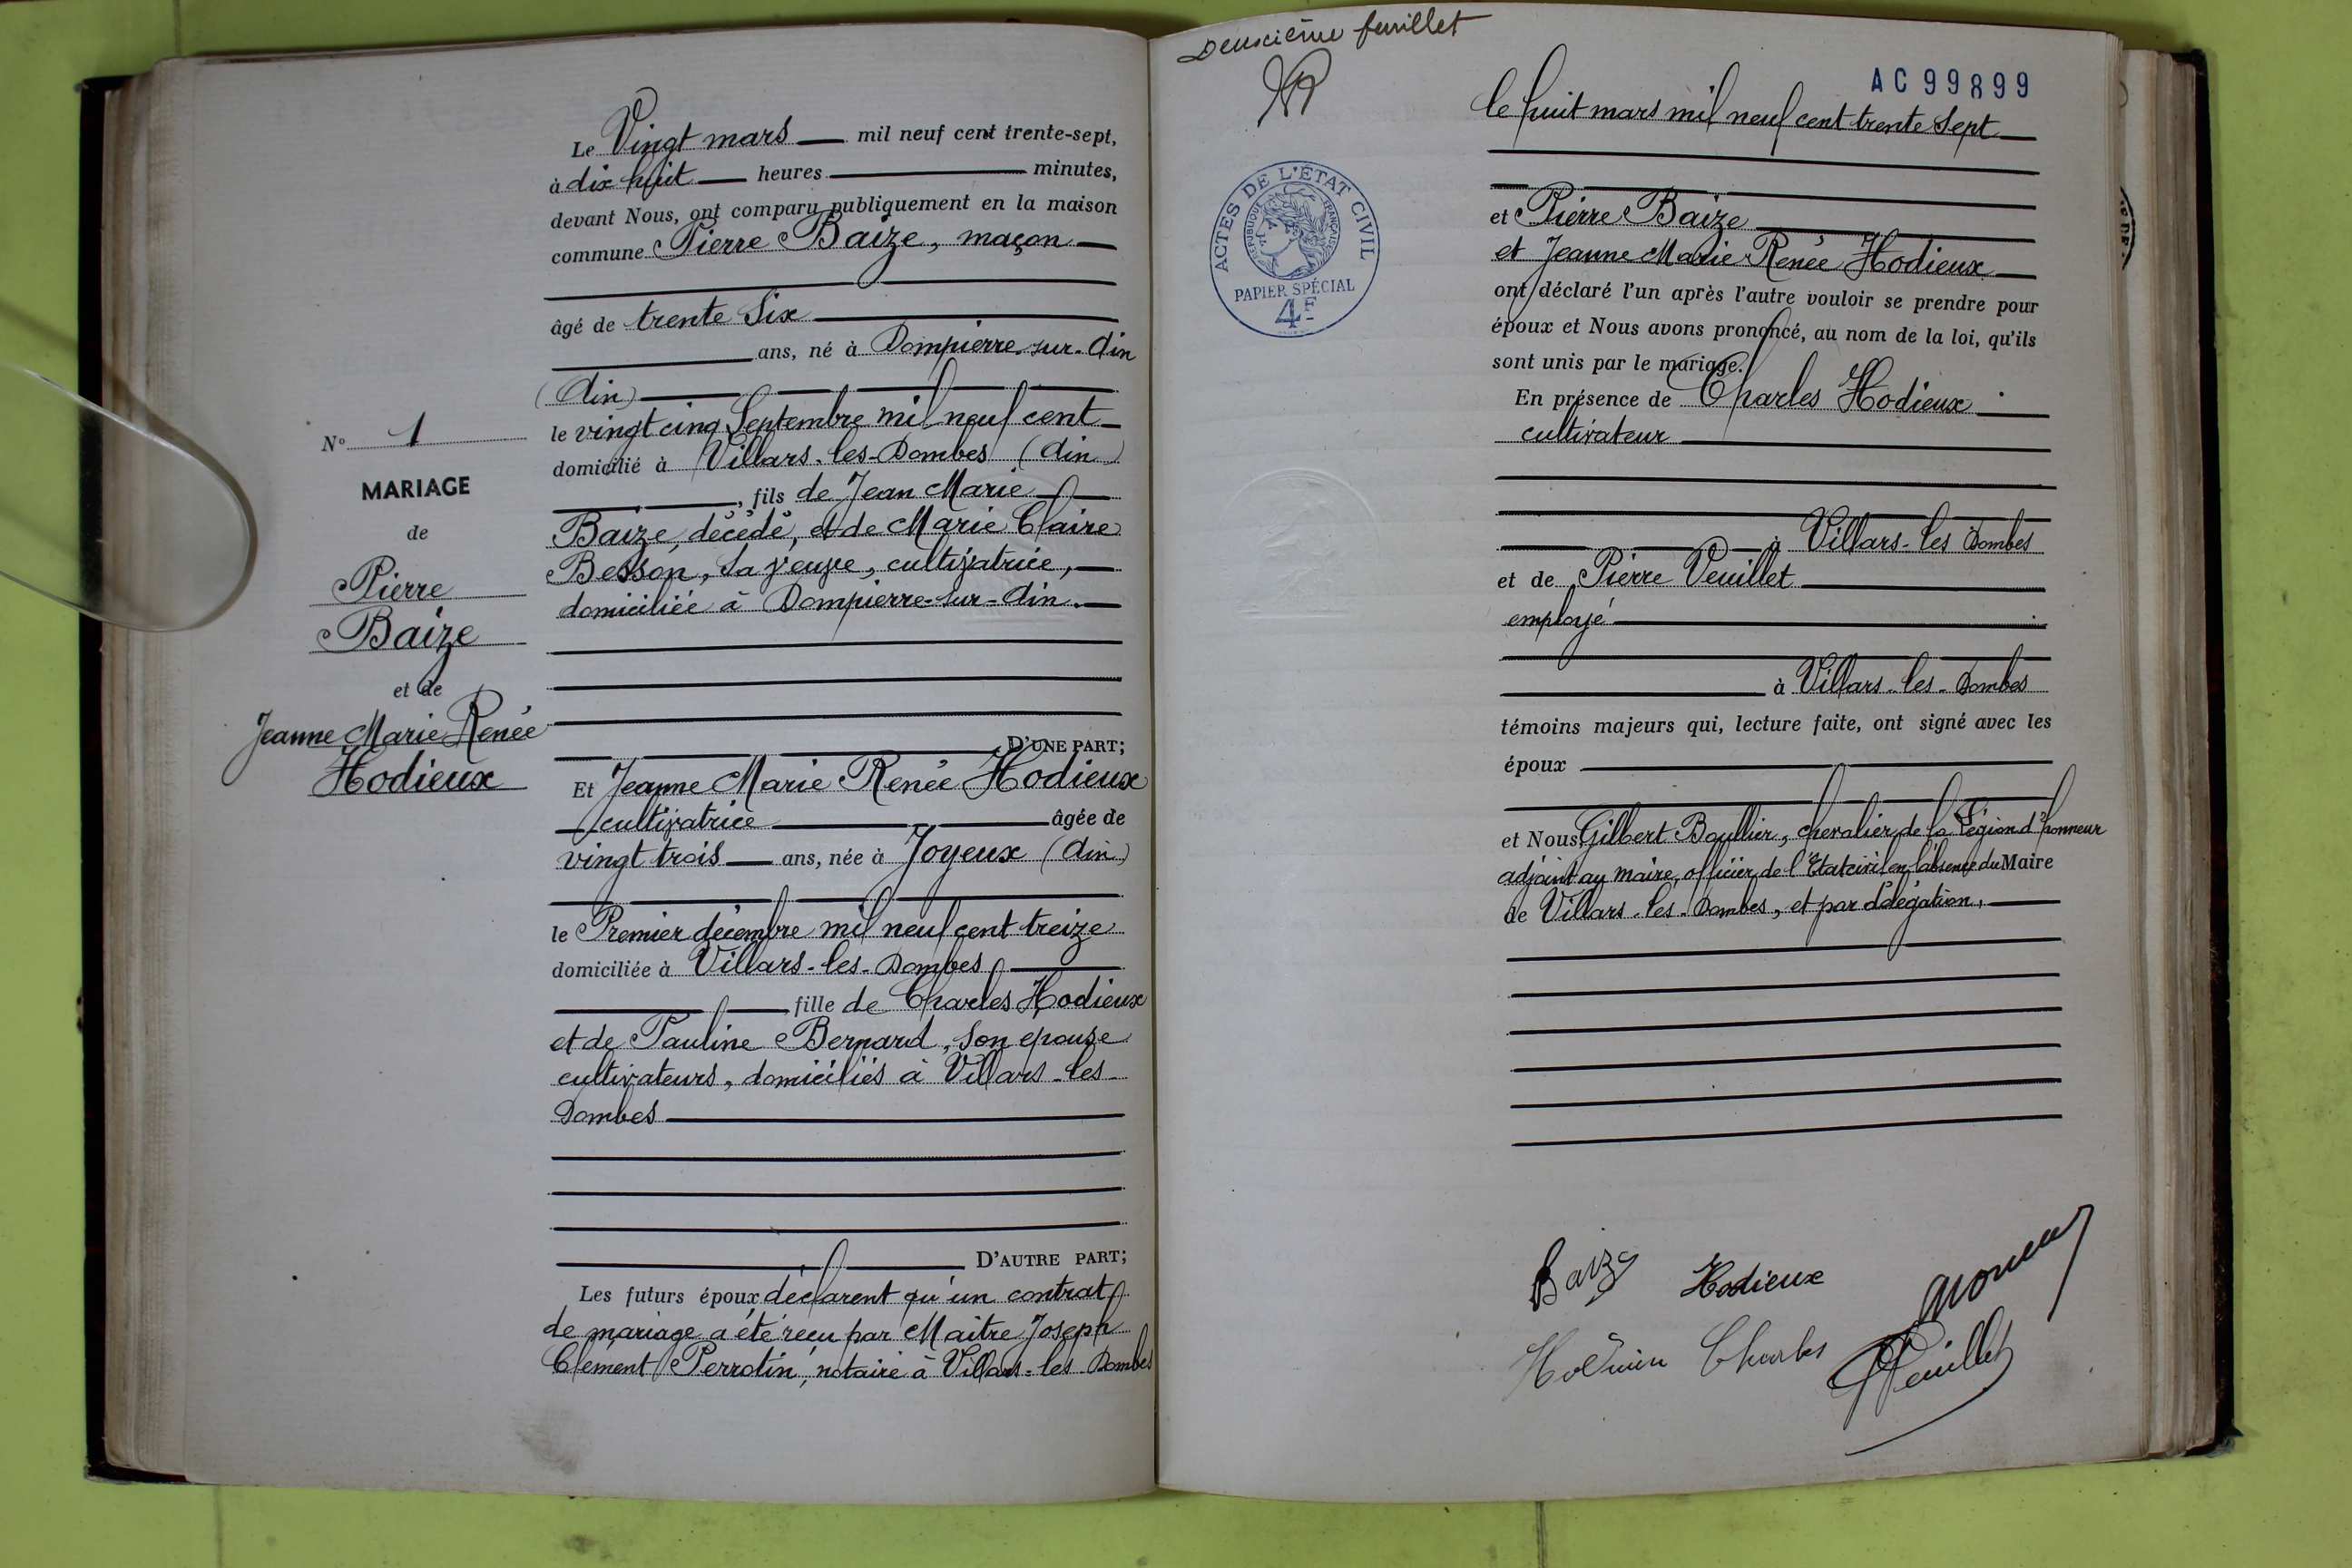 N° 1
MARIAGE
de
Pierre
Baize
et de
Jeanne Marie Renée
Hodieux
Le Vingt mars mil neuf cent trente-sept,
à dix huit heures minutes,
devant Nous, ont comparu publiquement en la maison
commune Pierre Baize, maçon
âgé de trente Six
ans, né à Dompierre-sur-Ain
(Ain)
le vingt cinq Septembre mil neuf cent
domicilié à Villars-les-Dombes (Ain)
, fils de Jean Marie
Baize, décédé, et de Marie Claire
Besson, sa veuve, cultivatrice,
domiciliée à Dompierre-sur-Ain.
D'UNE PART;
Et Jeanne Marie Renée Hodieux
cultivatrice âgée de
vingt trois ans, née à Joyeux (Ain)
le Premier décembre mil neuf cent treize
domiciliée à Villars-les-Dombes
fille de Charles Hodieux
et de Pauline Bernard, son epouse
cultivateurs, domiciliés à Villars-les-
Dombes
D'AUTRE PART;
Les futurs époux déclarent qu'un contrat
de mariage a été reçu par Maitre Joseph
Clément Perrotin, notaire à Villars-les-Dombes
Deuxième feuillet
AC99899
ACTES DE L'ÉTAT CIVIL
RÉPUBLIQUE FRANÇAISE
PAPIER SPÉCIAL
4F
le huit mars mil neuf cent trente Sept
et Pierre Baize
et Jeanne Marie Renée Hodieux
ont déclaré l'un après l'autre vouloir se prendre pour
époux et Nous avons prononcé, au nom de la loi, qu'ils
sont unis par le mariage.
En présence de Charles Hodieux
cultivateur
à Villars-les Dombes
et de Pierre Veuillet
employé
à Villars-les-Dombes
témoins majeurs qui, lecture faite, ont signé avec les
époux
et Nous, Gilbert Boullier, chevalier de la Légion d'honneur
adjoint au maire, officier de l'Etat civil en l'absence du Maire
de Villars-les-Dombes, et par délégation,
Baize Hodieux
Hodieux Charles Veuillet